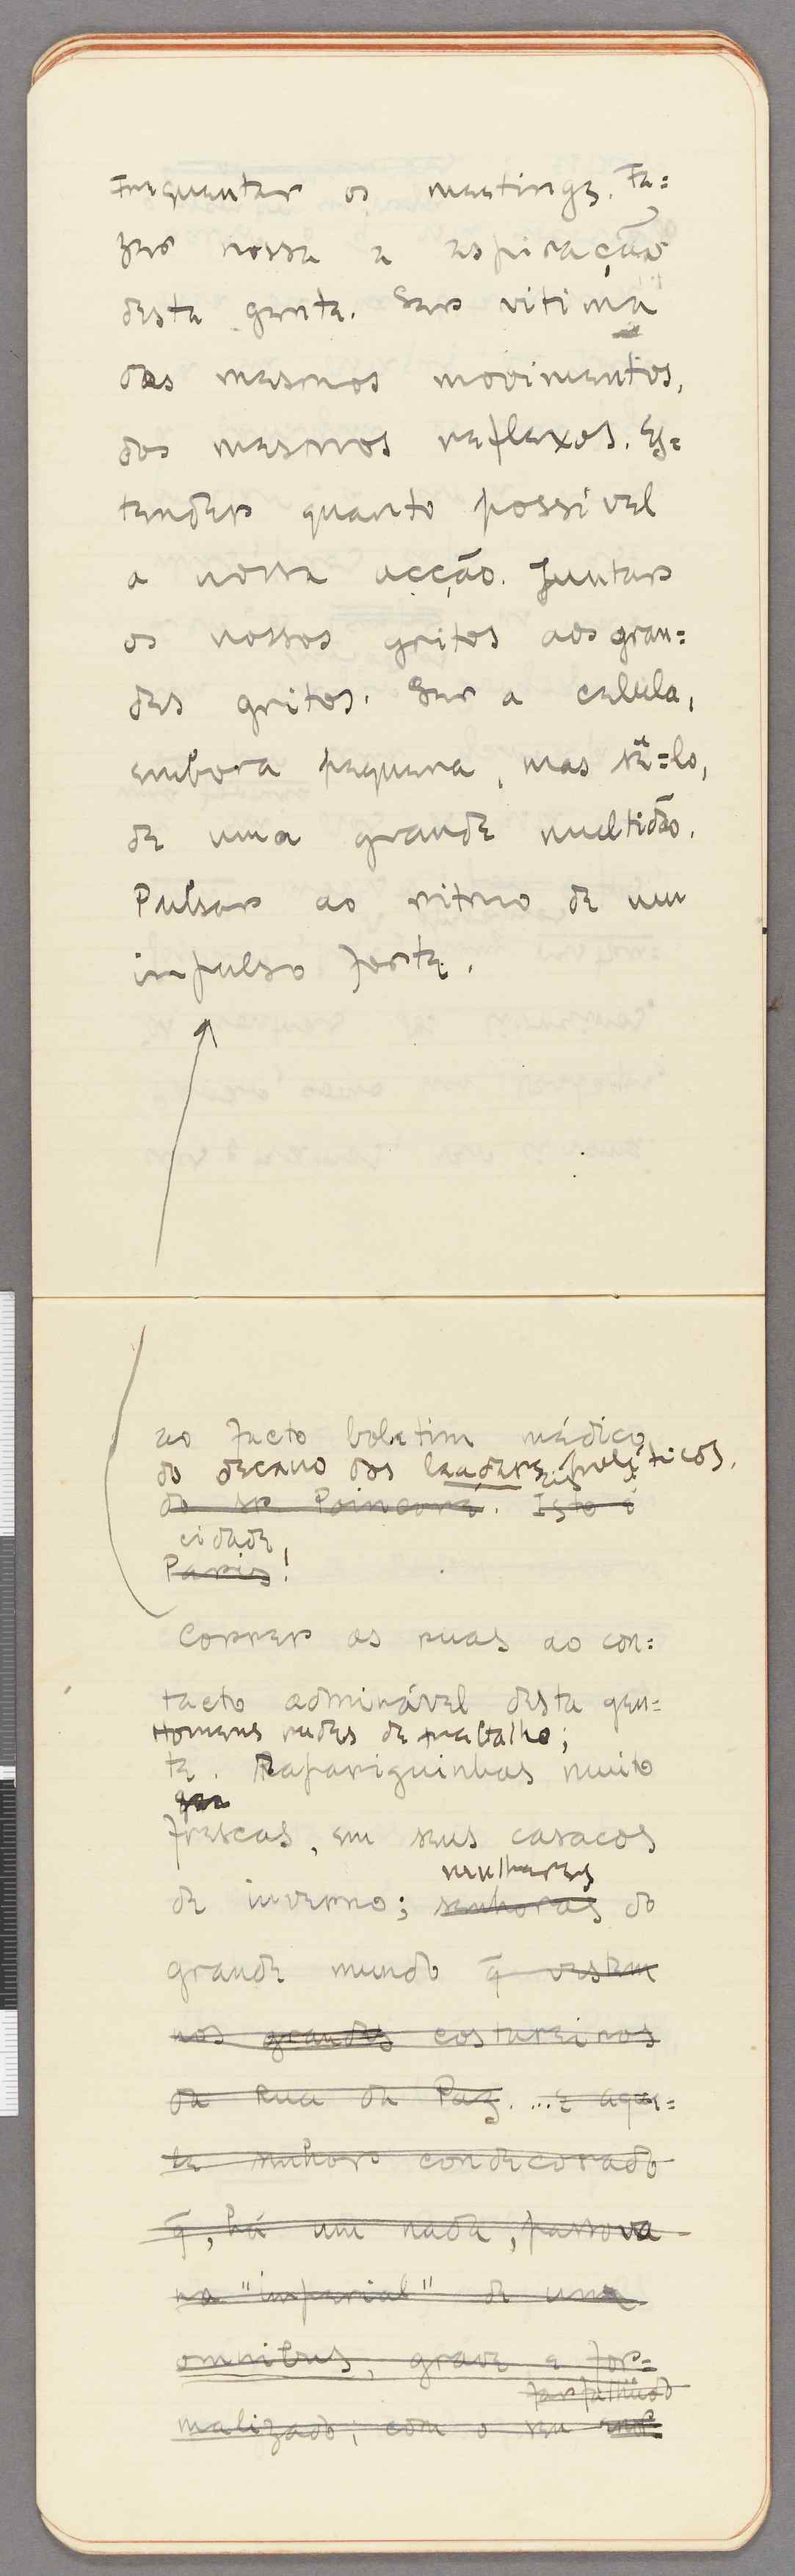 Frequentar os meetings. Fa=
zer nossa a aspiração
desta gente. Ser vitima
dos mesmos movimentos,
dos mesmos reflexos. Es=
tender quanto possivel
a nossa acção. Juntar
os nossos gritos aos gran=
des gritos. Ser a celula,
embora pequena, mas sê=lo,
de uma grande multidão.
Pulsar ao ritmo de um
impulso forte.
ao facto boletim médico
do decano dos leaders politicos.
do sr Poincaré. Isto é
cidade,
Paris!
Correr as ruas ao con=
tacto admirável desta gen=
Homens rudes de trabalho;
te. Rapariguinhas muito
frescas, em seus casacos
mulheres
de inverno; senhoras do
grande mundo q̃ vestem
nos grandes costureiros
da Rua da Paz. ...e aque=
le senhor condecorado
q̃, há um nada, passava
na "imperial" de uma
omnibus, grave e for=
farfalhudo
malizado; com o seu